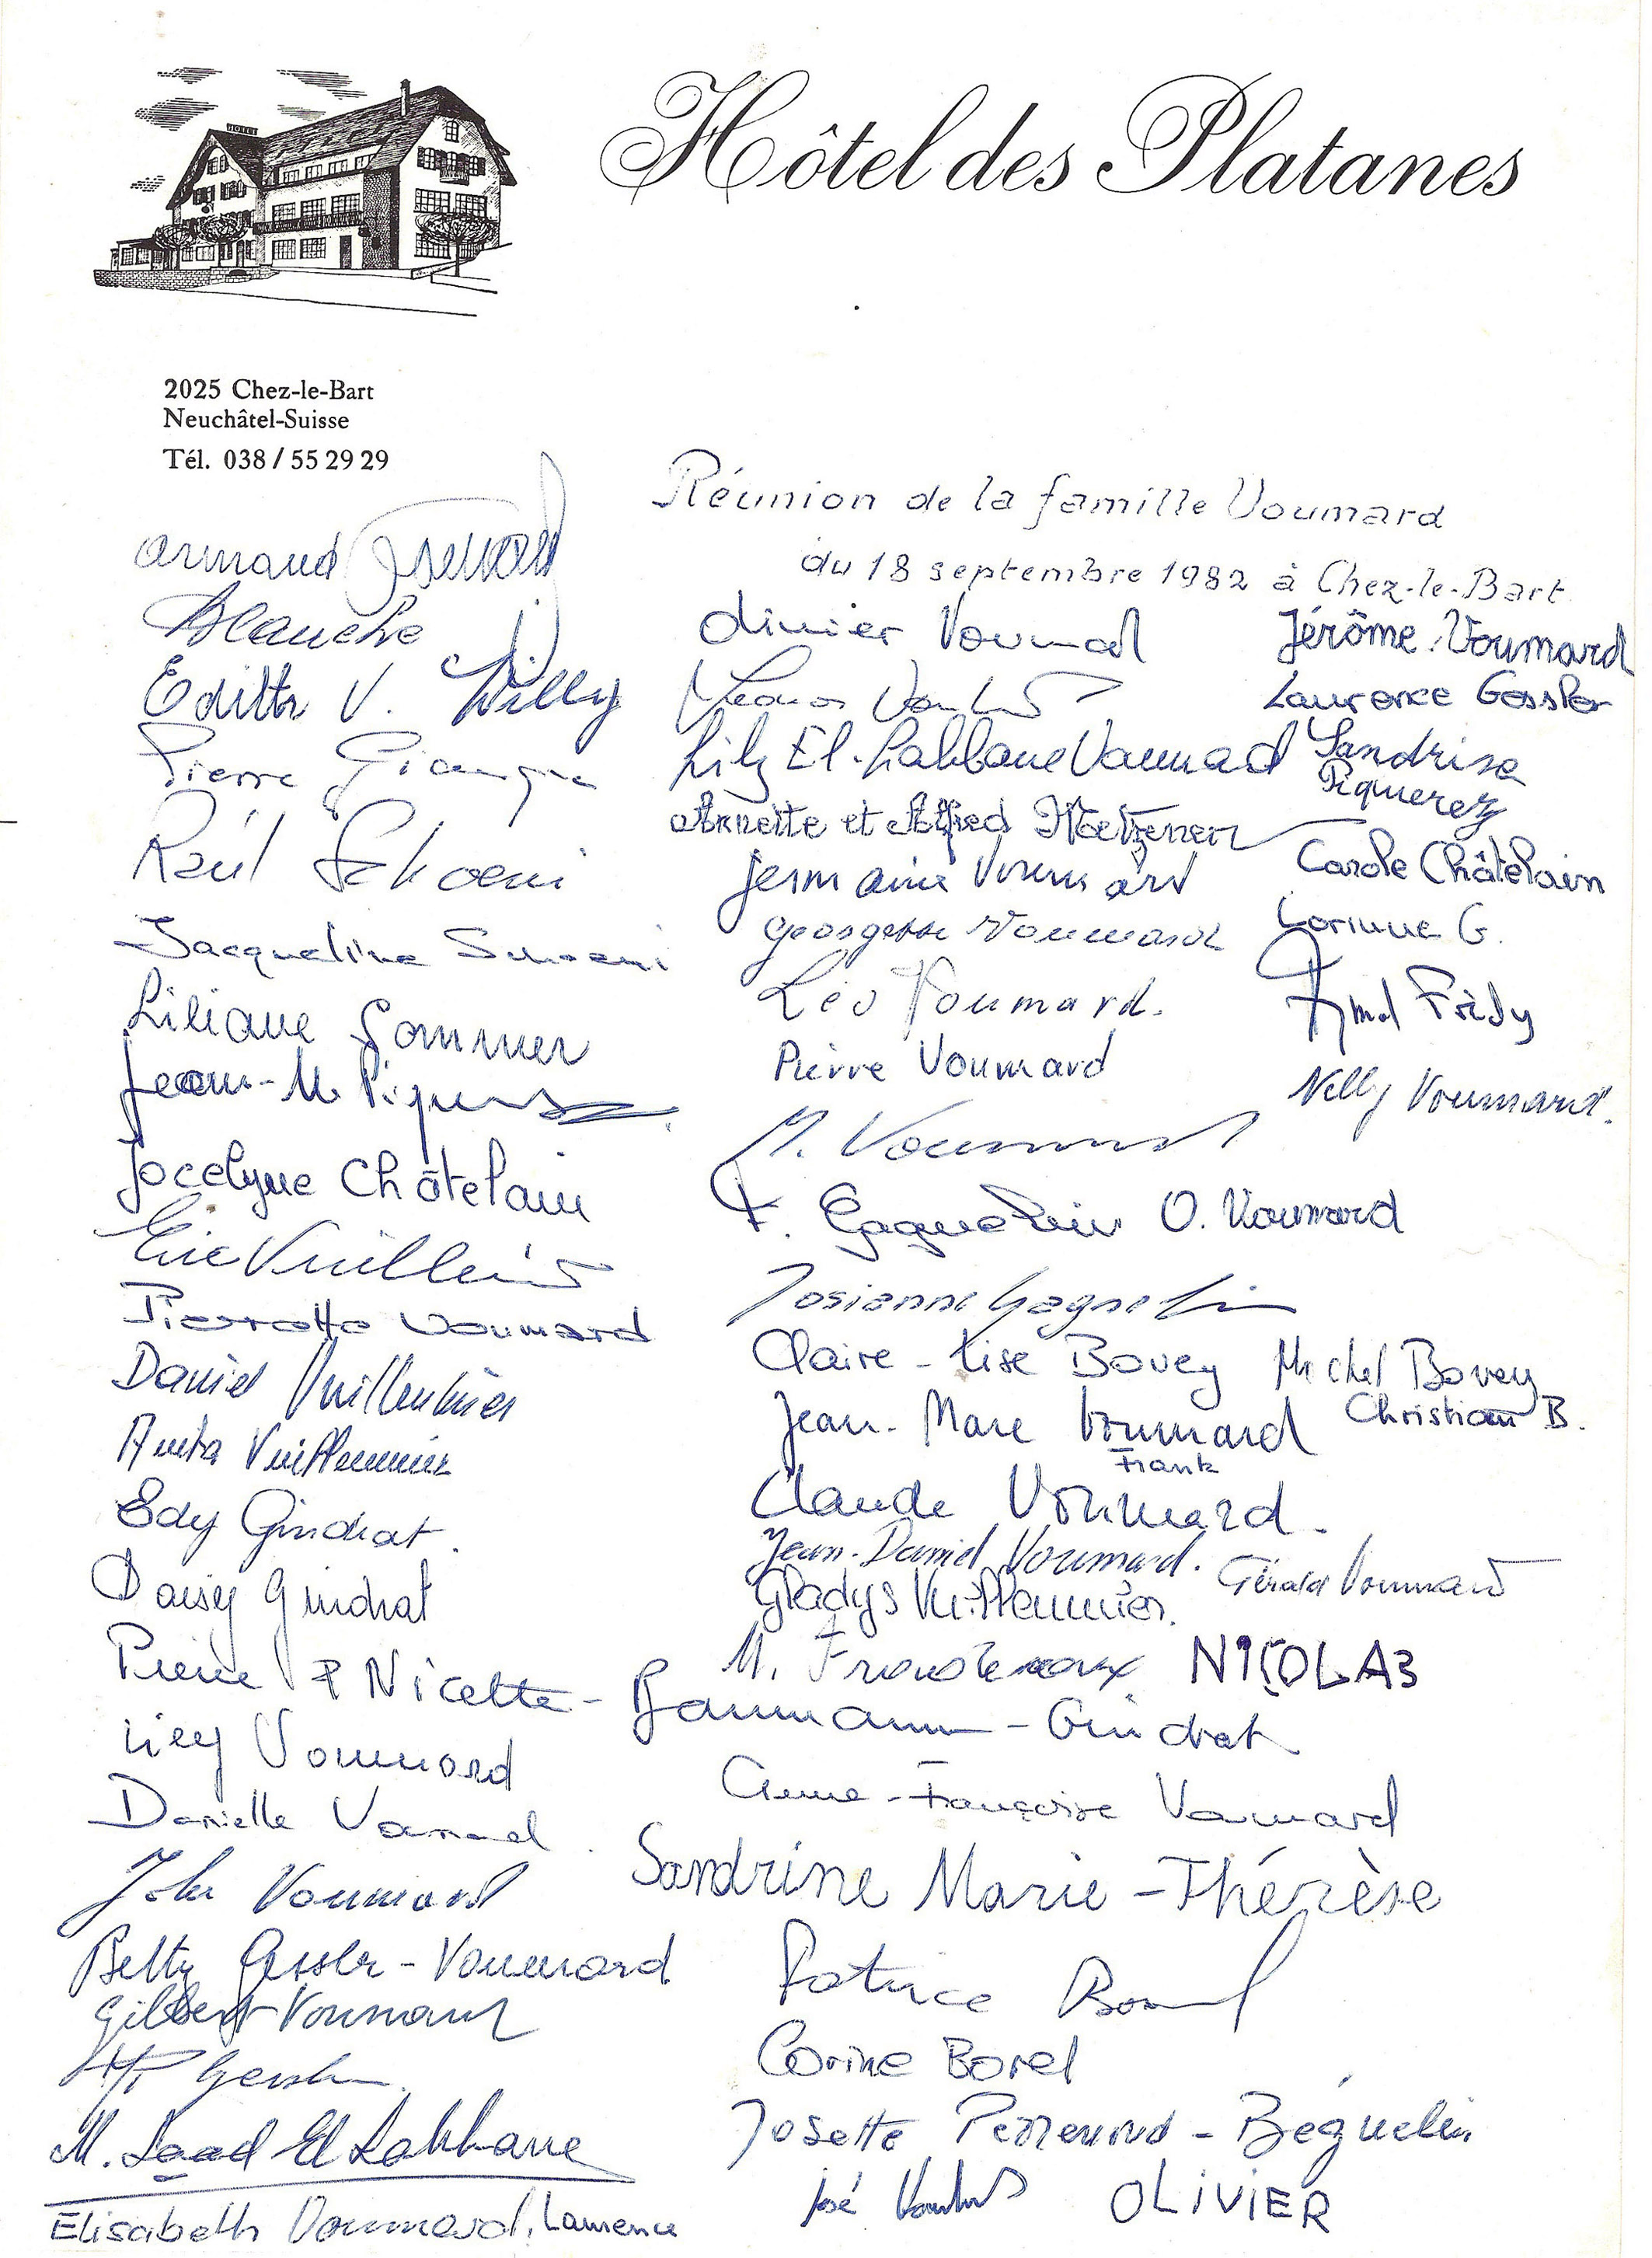 Hôtel des Platanes
HOTEL
2025 Chez-le-Bart
Neuchâtel-Suisse
Tél. 038 / 55 29 29
Réunion de la famille Voumard
du 18 septembre 1982 à Chez-le-Bart
Armand
Blanche
Edith V. Willy
Pierre
Raúl Schoeni
Jacqueline Schoeni
Liliane Sommer
Jean-M. Piquerez
Jocelyne Châtelain
Eric Vuilleumier
Pierrette Voumard
Daniel Vuilleumier
Anita Vuilleumier
Edy Gindrat.
Daisy Gindrat
Pierre & Nicette - Baumann - Gindrat
Lily Voumard
Danielle Voumard
John Voumard
Betty Gessler - Voumard
Gilbert Voumard
HP Gessler
M. Saad El Labbane
Elisabeth Voumard, Laurence
Olivier Voumard
Voumard
Lily El-Labbane Voumard
Annette et Alfred
Germaine Voumard
Georgette Voumard
Léo Voumard.
Pierre Voumard
M. Voumard
F. Gagnebin O. Voumard
Josianne Gagnebin
Claire-Lise Bovey Michel Bovey
Christian B.
Jean-Marc Voumard
Frank
Claude Voumard.
Jean-Daniel Voumard. Gérald Voumard
Gladys Vuilleumier.
M. NICOLAS
Anne-Françoise Voumard
Sandrine Marie-Thérèse
Patrice Borel
Corine Borel
Josette Perrenoud - Béguelin
José OLIVIER
Jérôme Voumard
Laurence Gessler
Sandrine
Piquerez
Carole Châtelain
Corinne G.
Frédy
Nelly Voumard.